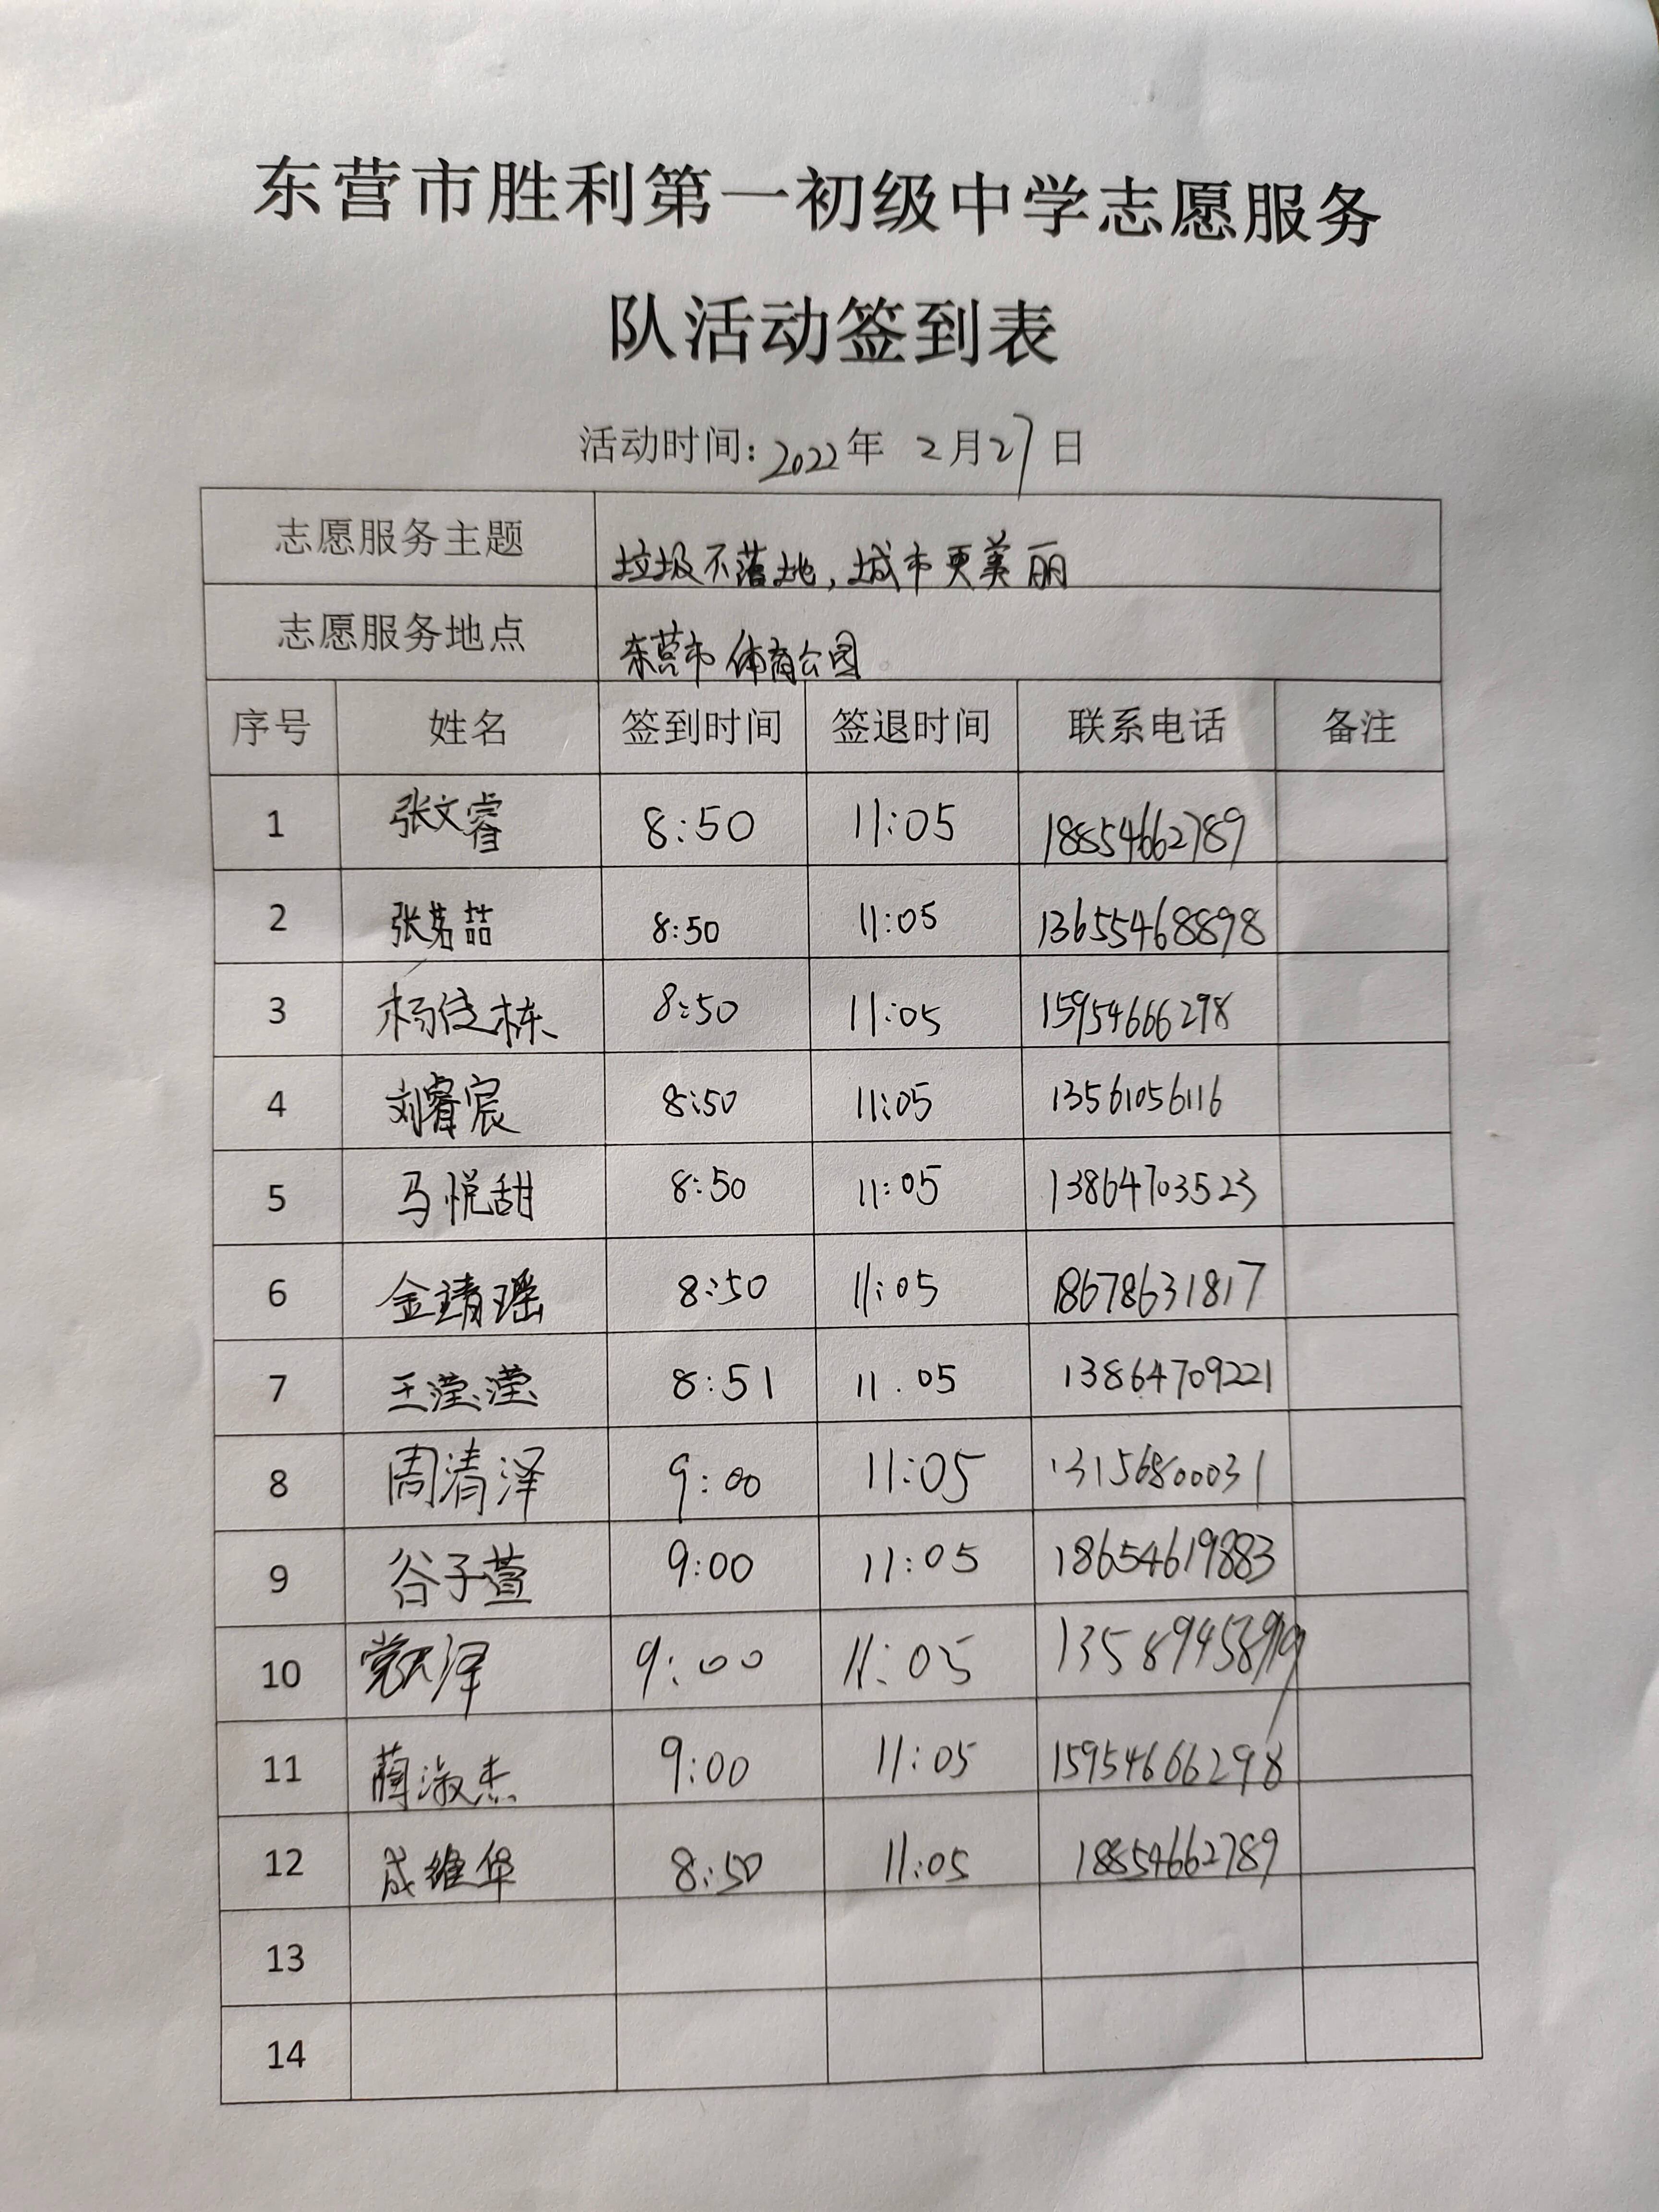 东营市胜利第一初级中学志愿服务
队活动签到表
活动时间：2022年 2月27日
志愿服务主题 垃圾不落地，城市更美丽
志愿服务地点 东营市体育公园
序号 姓名 签到时间 签退时间 联系电话 备注
1 张文睿 8:50 11:05 18854662789
2 张茗喆 8:50 11:05 13655468898
3 杨佳栋 8:50 11:05 15954666298
4 刘睿宸 8:50 11:05 13561056116
5 马悦甜 8:50 11:05 13864703523
6 金靖瑶 8:50 11:05 18678631817
7 王滢滢 8:51 11:05 13864709221
8 周清泽 9:00 11:05 13156800031
9 谷子萱 9:00 11:05 18654619883
10 9:00 11:05
11 蔺淑杰 9:00 11:05 15954666298
12 成维华 8:50 11:05 18854662789
13
14